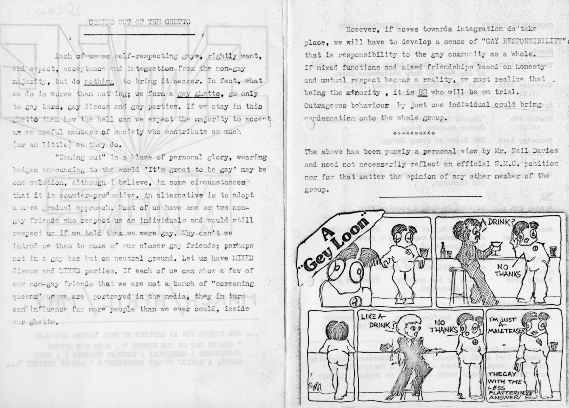 COMING OUT OF THE GHETTO
Each of us self-respecting gays, rightly want,
and expect, acceptance and integration from the non-gay
majority, but do nothing to bring it nearer. In fact, what
we do is worse than nothing; we form a gay ghetto, go only
to gay bars, gay discos and gay parties. If we stay in this
ghetto then how the hell can we expect the majority to accept
us as useful members of society who contribute as much
(or as little) as they do.
"Coming out" in a blaze of personal glory, wearing
badges announcing to the world "It's great to be gay" may be
one solution, although I believe, in some circumstances
that it is counter-productive. An alternative is to adopt
a more gradual approach. Most of us have one or two non-
gay friends who respect us as individuals and would still
respect us if we told them we were gay. Why can't we
introduce them to some of our closer gay friends; perhaps
not in a gay bar but on neutral ground. Let us have MIXED
discos and MIXED parties. If each of us can show a few of
our non-gay friends that we are not a bunch of "screaming
queens" as we are portrayed in the media, they in turn
can influence far more people than we ever could, inside
our ghetto.
However, if moves towards integration do take
place, we will have to develop a sense of "GAY RESPONSIBILITY"
that is responsibility to the gay community as a whole.
If mixed functions and mixed friendships based on honesty
and mutual respect become a reality, we must realize that
being the minority, it is US who will be on trial.
Outrageous behaviour by just one individual could bring
condemnation onto the whole group.
**********
The above has been purely a personal view by Mr. Neil Davies
and need not necessarily reflect an official position
nor for that matter the opinion of any other member of the
group.
A
"Gey Loon"
A DRINK?
NO
THANKS
LIKE A-
DRINK?
NO
THANKS
I'M JUST
A-
MALTEASER
THE GAY
WITH THE
LESS
FLATTERING
ANSWER!